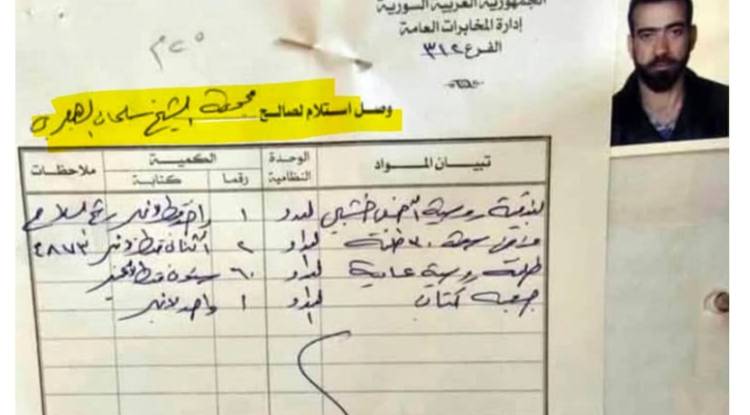 الجمهورية العربية السورية
إدارة المخابرات العامة
الفرع ٣١٢
وصل استلام لصالح مجموعة الشيخ سلمان
تبيان المواد الوحدة النظامية الكمية رقما كتابة ملاحظات
بندقية روسية أخمص خشبي عدد ١ واحد فقط لا غير رقم السلاح
مخزن سعة ٣٠ طلقة عدد ٢ اثنان فقط لا غير ٤٨٧٣
طلقة روسية عادية عدد ٦٠ ستون فقط لا غير
جعبة كتان عدد ١ واحد لا غير